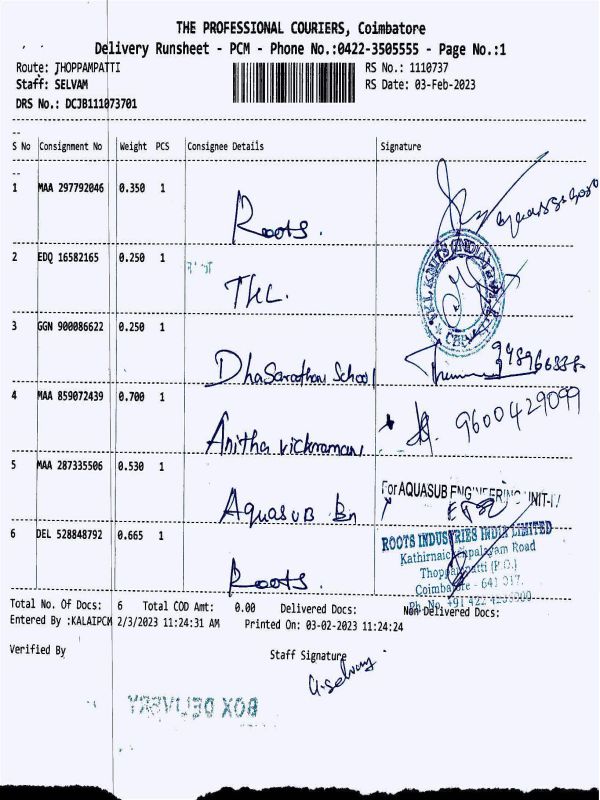 THE PROFESSIONAL COURIERS, Coimbatore
Delivery Runsheet - PCM - Phone No.:0422-3505555 - Page No.:1
Route: THOPPAMPATTI RS No.: 1110737
Staff: SELVAM RS Date: 03-Feb-2023
DRS No.: DCJB111073701
S No Consignment No Weight PCS Consignee Details Signature
1 MAA 297792046 0.350 1 Roots.
2 EDQ 16582165 0.250 1 TKL.
3 GGN 900086622 0.250 1 Dhasarathan School
4 MAA 859072439 0.700 1 Anitha vickraman 9600429099
5 MAA 287335506 0.530 1 Aquasub En
For AQUASUB ENGINEERING UNIT-IV
6 DEL 528848792 0.665 1 Roots.
ROOTS INDUSTRIES INDIA LIMITED
Kathirnaickenpalayam Road
Thoppampatti (P.O.)
Coimbatore - 641 017.
Ph. No. +91 422
Total No. Of Docs: 6 Total COD Amt: 0.00 Delivered Docs: Non Delivered Docs:
Entered By :KALAIPCM 2/3/2023 11:24:31 AM Printed On: 03-02-2023 11:24:24
Verified By Staff Signature
BOX DELIVERY